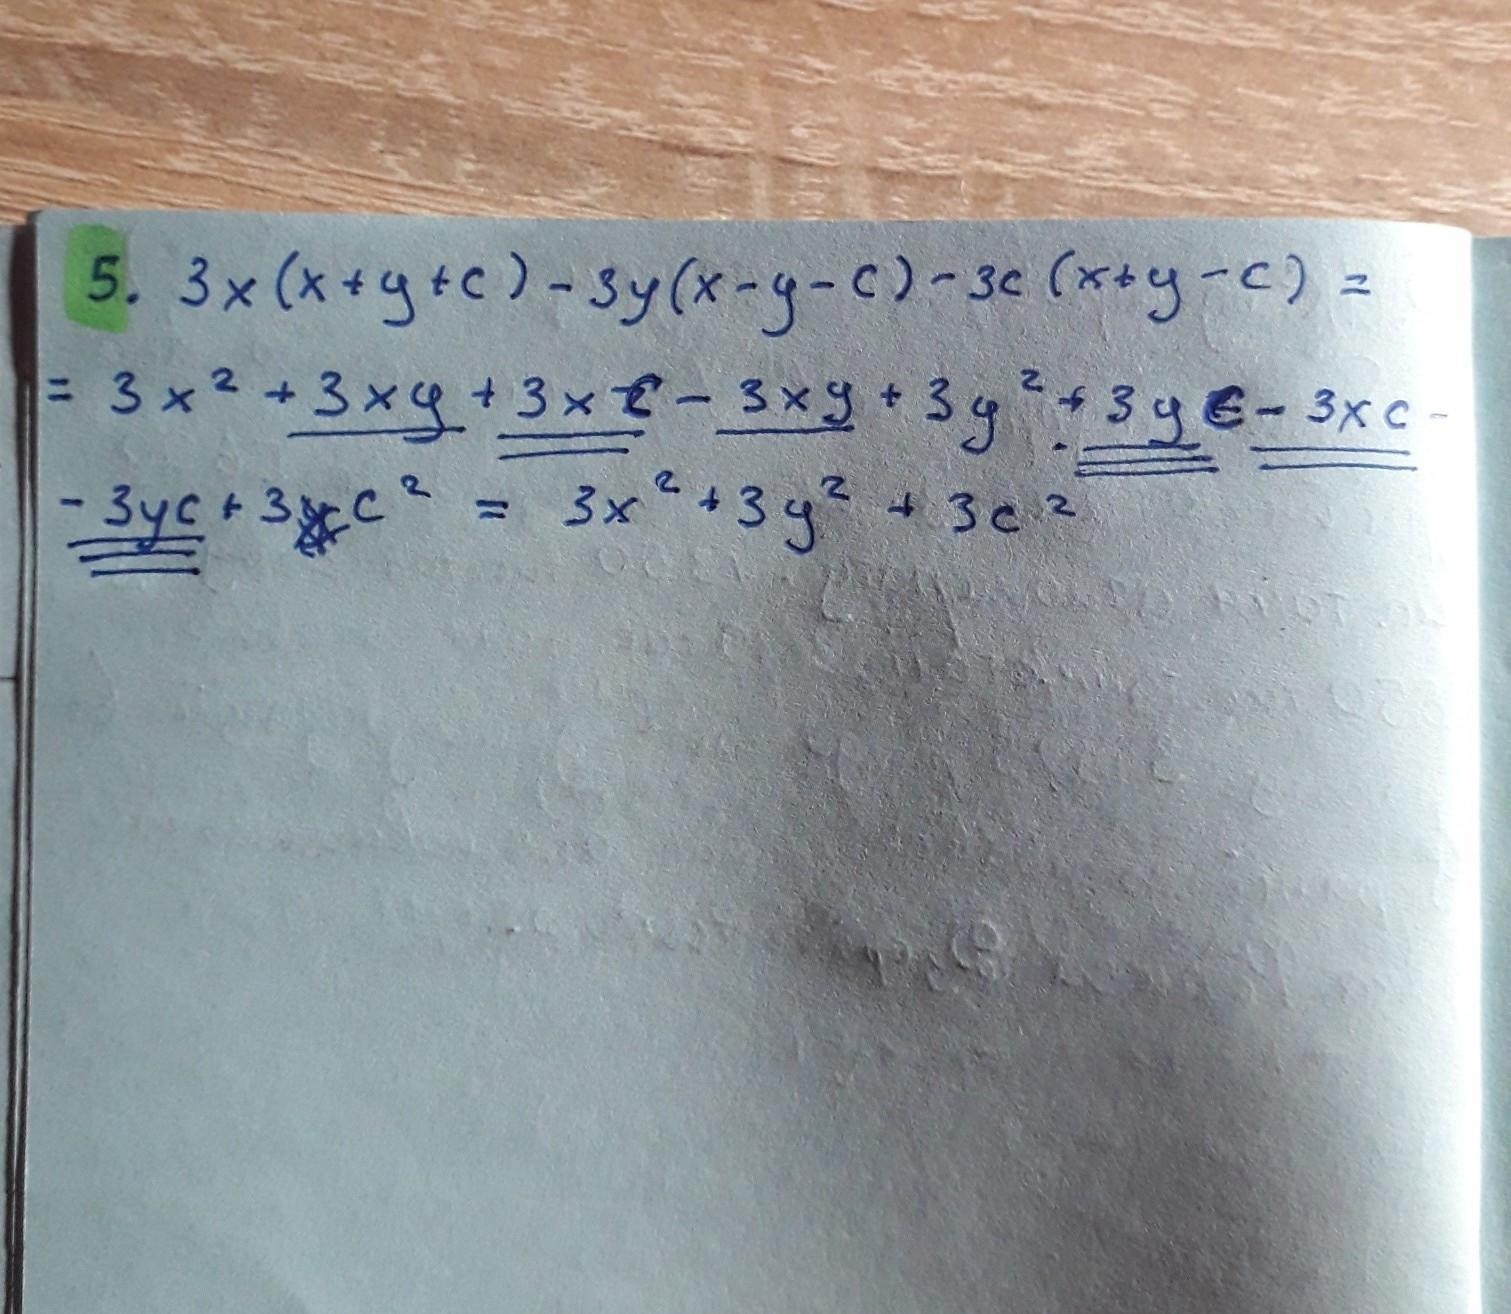 5. 3x(x+y+c)-3y(x-y-c)-3c(x+y-c)=
= 3x² + 3xy + 3xc - 3xy + 3y² + 3yc - 3xc -
- 3yc + 3c² = 3x² + 3y² + 3c²